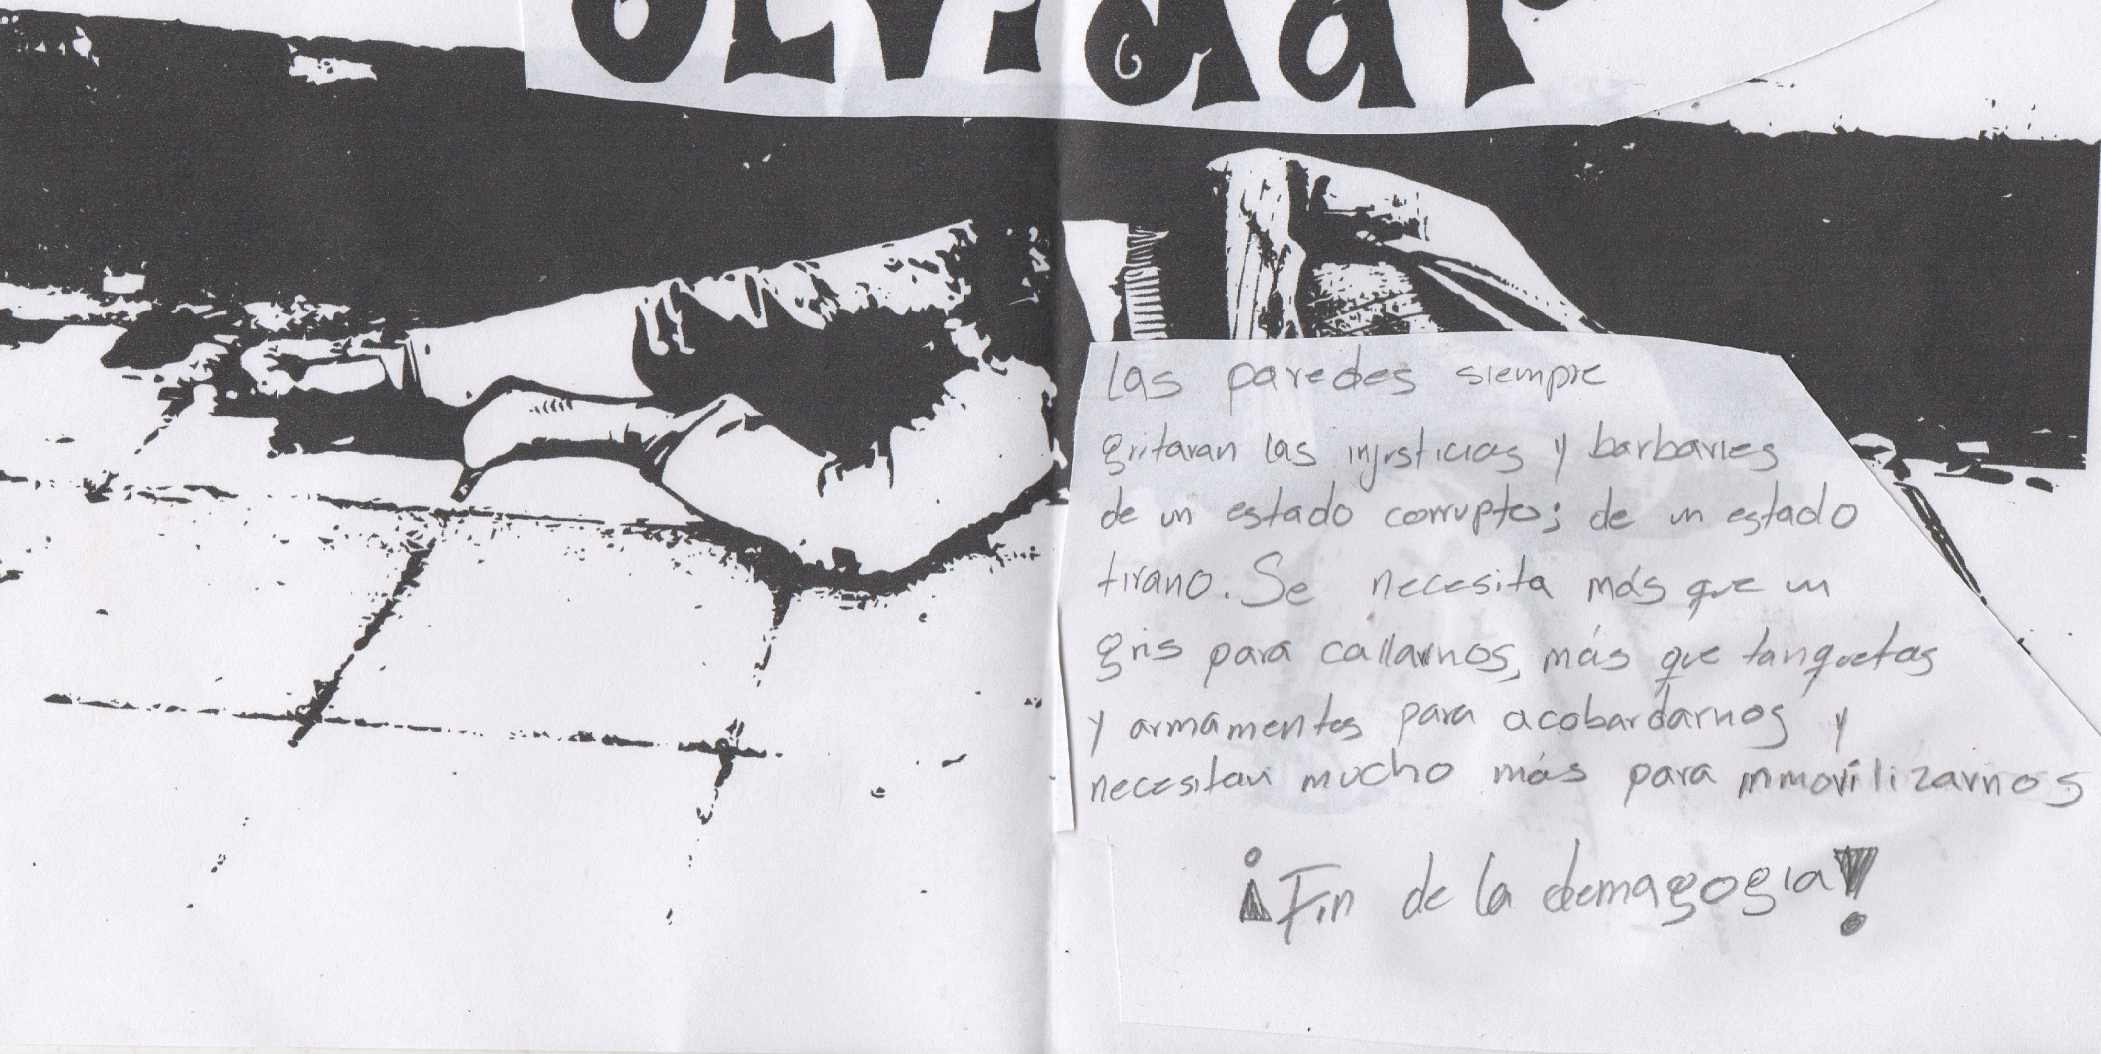 olvidar
las paredes siempre
gritaran las injusticias y barbaries
de un estado corrupto; de un estado
tirano. Se necesita más que un
gris para callarnos, más que tanquetas
y armamentos para acobardarnos y
necesitan mucho más para inmovilizarnos
¡Fin de la demagogia!